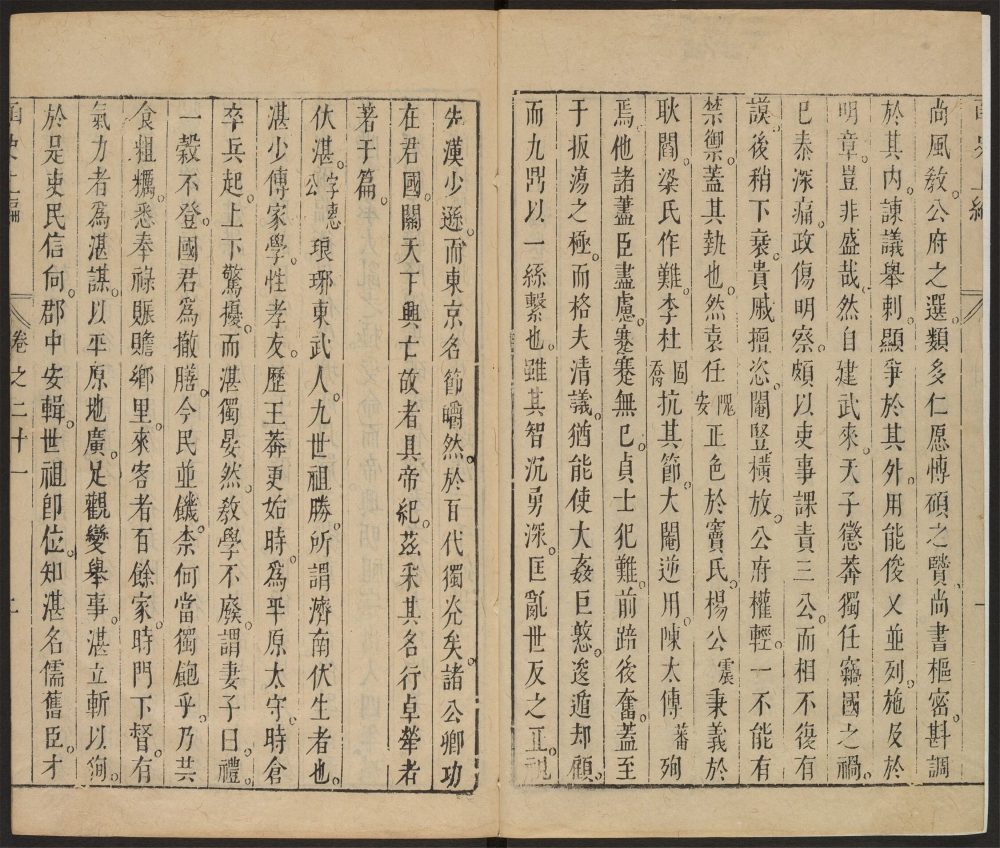 尚風敎。公府之選。類多仁愿愽碩之賢。尚書樞密斟調
於其内。諫議舉刺。顯爭於其外。用能俊乂並列。施及於
明章。豈非盛哉。然自建武來。天子懲莽獨任竊國之禍。
巳泰深痛。政傷明察。頗以吏事課責三公。而相不復有
謨。後稍下衰。貴戚擅恣。閹豎橫放。公府權輕。一不能有
禁禦。葢其執也。然袁任隗安正色於竇氏。楊公震秉義於
耿閻。梁氏作難。李杜固喬抗其節。大閹逆用。陳太傅蕃殉
焉。他諸藎臣盡慮。蹇蹇無巳。貞士犯難。前踣後奮。葢至
于扳蕩之極。而格夫清議。猶能使大姦巨憝。逡遁却顧。
而九鼎以一絲繫也。雖其智沉勇深。匡亂世反之正。視
先漢少遜。而東京名節皭然。於百代獨光矣。諸公卿功
在君國。關天下興亡故者具帝紀。茲釆其名行卓犖者
著于篇。
伏湛。字惠公琅琊東武人。九世祖勝。所謂濟南伏生者也。
湛少傳家學。性孝友。歷王莽更始時。為平原太守。時倉
卒兵起。上下驚擾。而湛獨晏然。敎學不廢。謂妻子曰。禮。
一穀不登。國君為撤膳。今民並饑。柰何當獨飽乎。乃共
食粗糲。悉奉祿賑贍鄉里。來客者百餘家。時門下督。有
氣力者為湛謀。以平原地廣。足觀變舉事。湛立斬以狥。
於是吏民信向。郡中安輯。世祖卽位。知湛名儒舊臣。才
卷之二十一